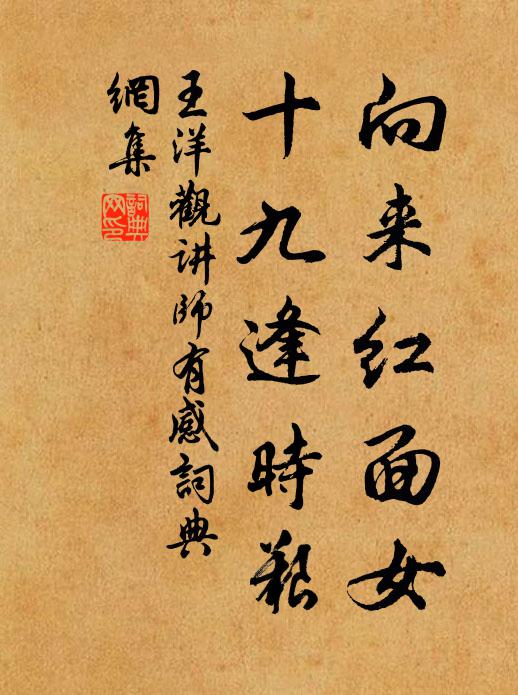 向来红面女
十九逢時艱
王洋觀讲師有感詞典
網集
詞典
网印